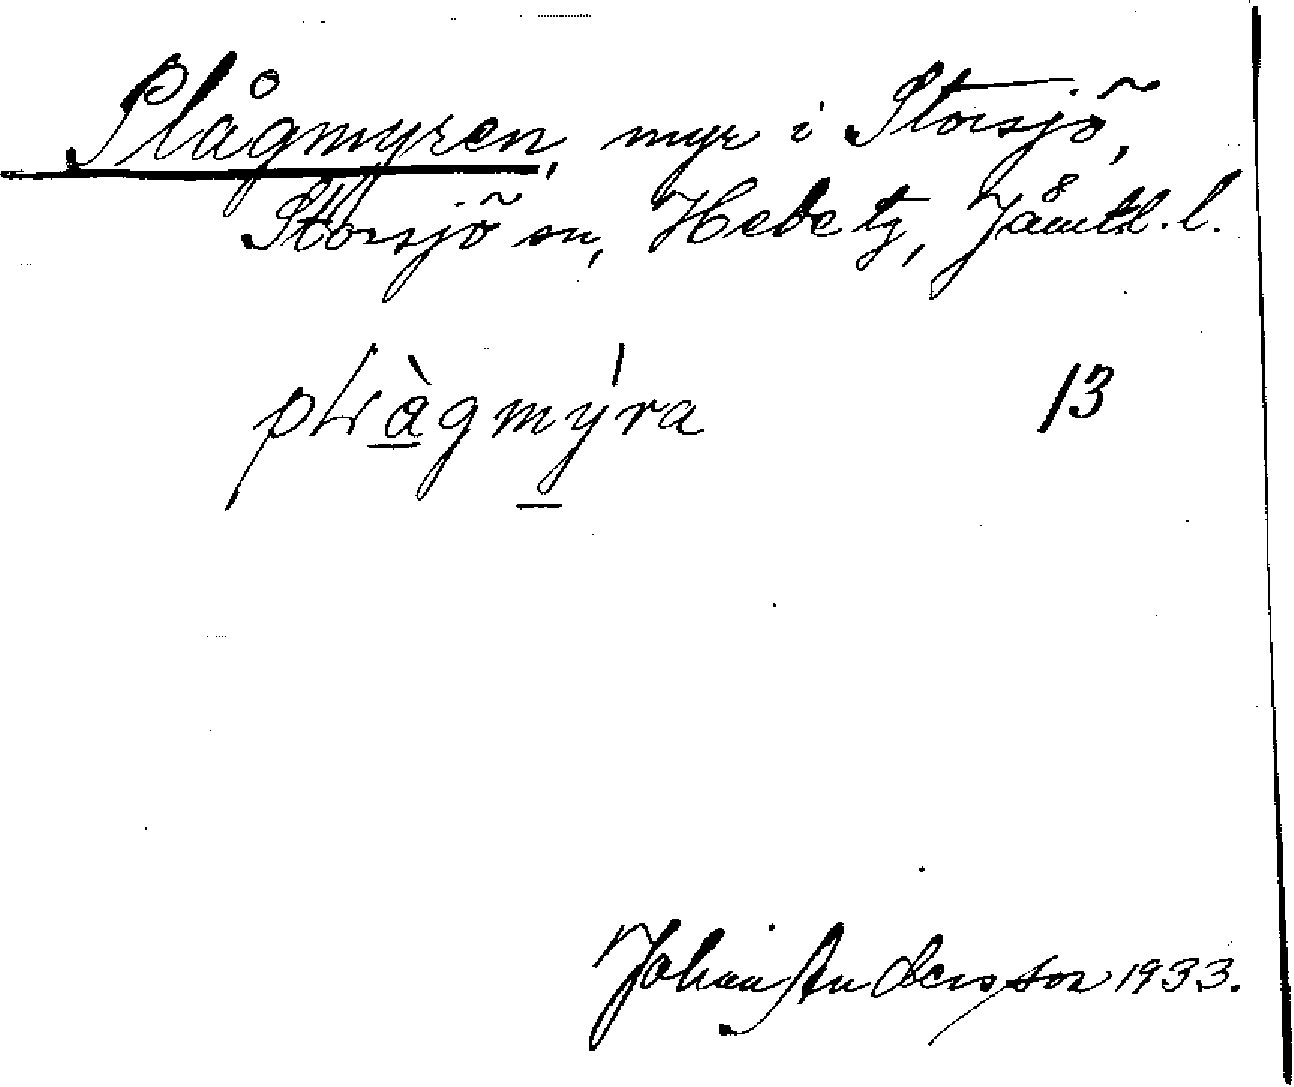 Plågmyren, myr i Storsjö,
Storsjö sn, Hede tg, Jämtl. l.
pLàgmýra 13
Johan Andersson 1933.